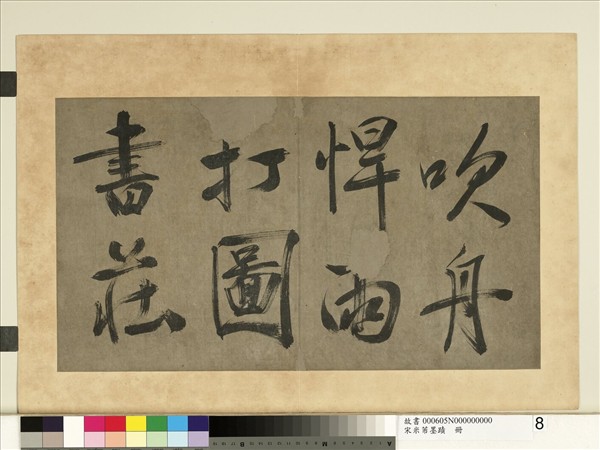 吹舟
悍雨
打圖
書莊
故書 000605N000000000
宋米芾墨蹟 冊
8